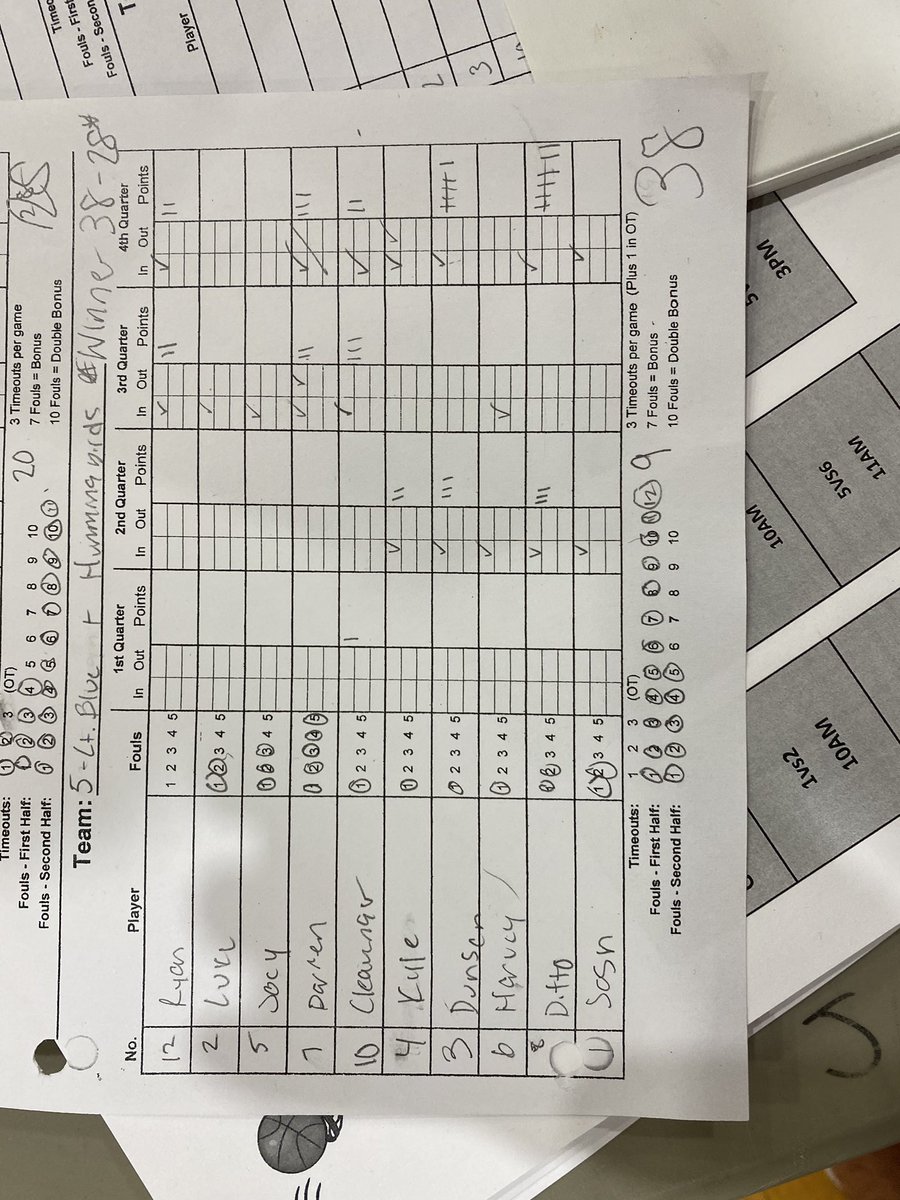 Timeouts: 1 2 3 (OT) 3 Timeouts per game
Fouls - First Half: 1 2 3 4 5 6 7 8 9 10 20 7 Fouls = Bonus
Fouls - Second Half: 1 2 3 4 5 6 7 8 9 10 11 10 Fouls = Double Bonus
Team: 5 - Lt. Blue Hummingbirds Winner 38-28*
No. Player Fouls 1st Quarter 2nd Quarter 3rd Quarter 4th Quarter
In Out Points In Out Points In Out Points In Out Points
12 Ryan 1 2 3 4 5
2 Luke 1 2 3 4 5
5 Joey 1 2 3 4 5
7 Darren 1 2 3 4 5
10 1 2 3 4 5
4 Kyle 1 2 3 4 5
3 1 2 3 4 5
6 Harvey 1 2 3 4 5
8 Ditto 1 2 3 4 5
1 Sosn 1 2 3 4 5
Timeouts: 1 2 3 (OT) 3 Timeouts per game (Plus 1 in OT)
Fouls - First Half: 1 2 3 4 5 6 7 8 9 10 11 12 9 7 Fouls = Bonus 38
Fouls - Second Half: 1 2 3 4 5 6 7 8 9 10 10 Fouls = Double Bonus
Fouls - First
Fouls - Second
Player
2
3
3PM
10AM
5VS6
11AM
1VS2
10AM
J